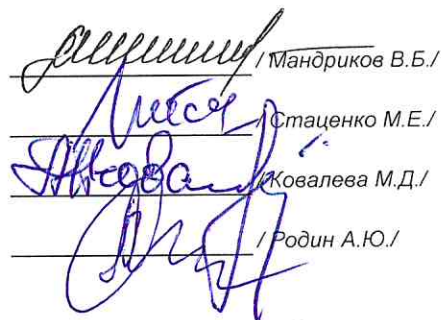 /Мандриков В.Б./
/Стаценко М.Е./
/Ковалева М.Д./
/Родин А.Ю./